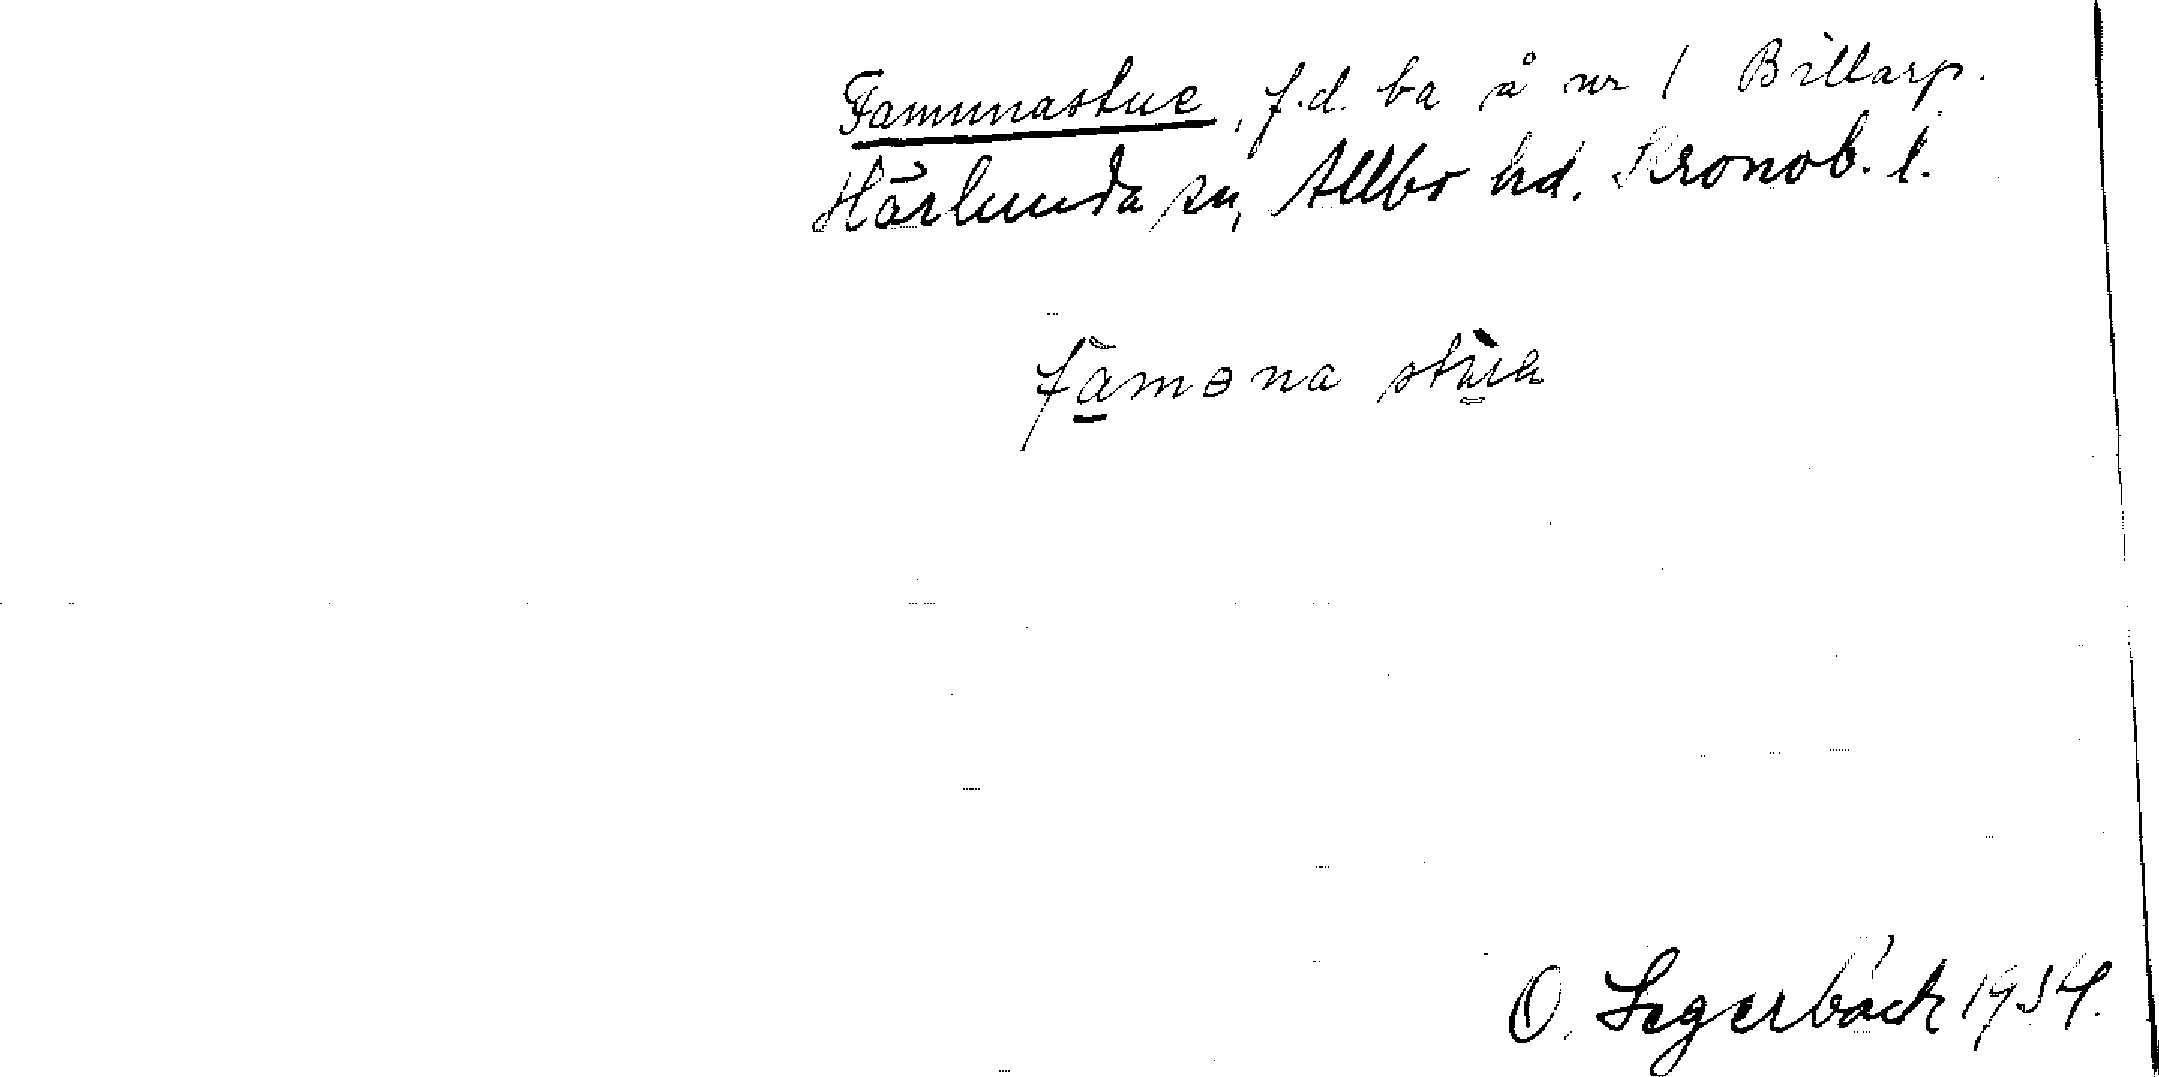 Fammnastue, f.d. ba å nr 1 Billarp.
Härlunda sn, Allbo hd. Kronob. l.
fàməna
O. Segerbäck 1934.